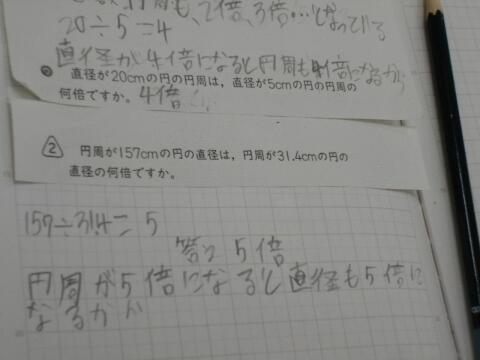 円周も、2倍、3倍…となっている
20÷5=4
直径が4倍になると円周も4倍になるから
直径が20cmの円の円周は，直径が5cmの円の円周の
何倍ですか。4倍
2 円周が157cmの円の直径は，円周が31.4cmの円の
直径の何倍ですか。
157÷31.4=5
答え 5倍
円周が5倍になると直径も5倍に
なるから